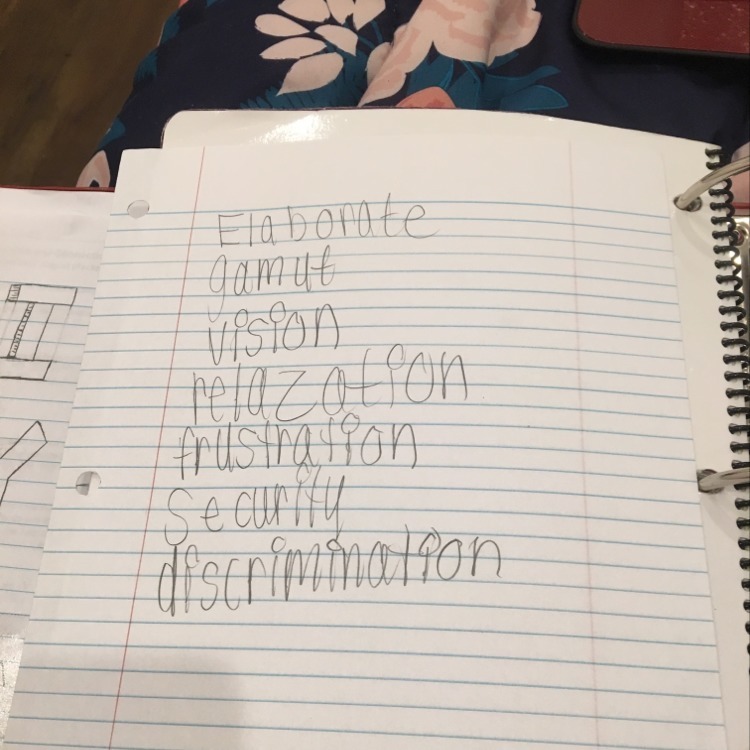 Elaborate
gamut
vision
relazation
frustration
Security
discrimination